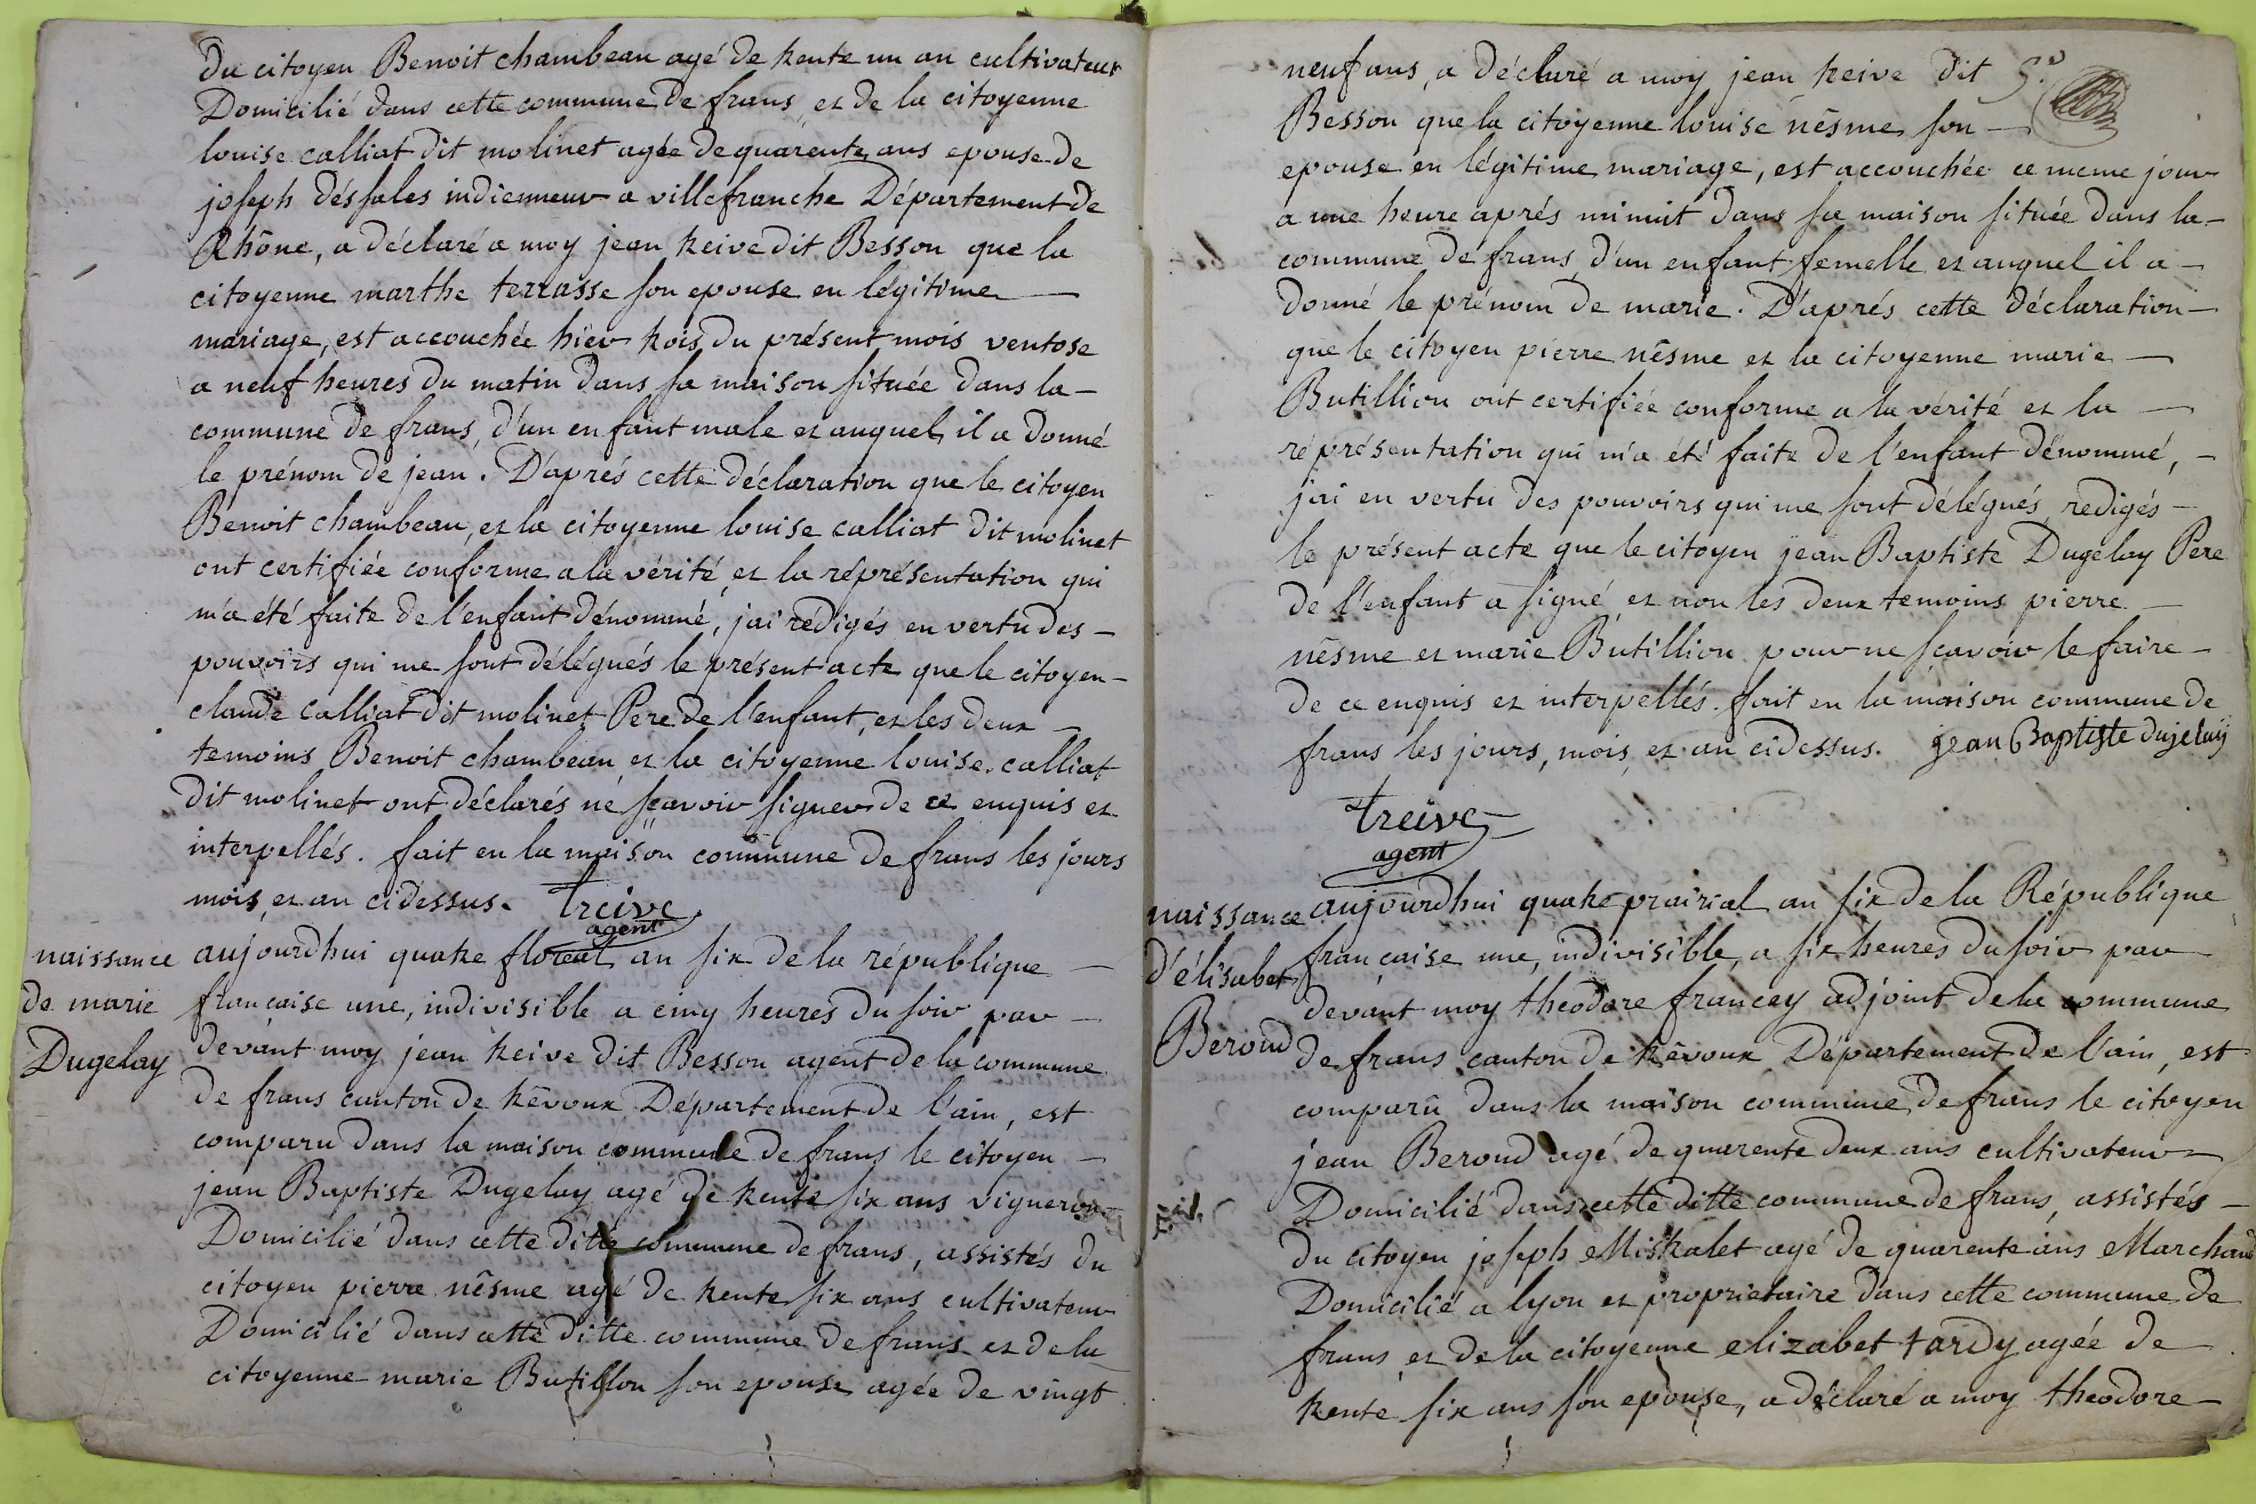 du citoyen Benoit chambeau agé de trente un an cultivateur
Domicilié dans cette commune de frans, et de la citoyenne
louise calliat dit molinet agée de quarente ans epouse de
joseph désales indienneur a villefranche Département de
Rhône, a déclaré a moy jean treive dit Besson que la
citoyenne marthe terrasse son epouse en légitime
mariage, est accouchée hïer trois du présent mois ventose
a neuf heures du matin dans sa maison située dans la
commune de frans, d'un enfant male et auquel il a donné
le prénom de jean. D'aprés cette déclaration que le citoyen
Benoit chambeau, et la citoyenne louise calliat dit molinet
ont certifiée conforme a la vérité, et la réprésentation qui
m'a été faite de l'enfant dénommé, jai rédigés en vertu des
pouvoirs qui me sont délégués le présent acte que le citoyen
claude calliat dit molinet Pere de l'enfant, et les deux
temoins Benoit chambeau et la citoyenne louise calliat
dit molinet ont déclarés né sçavoir signer de ce enquis et
interpellés. fait en la maison commune de frans les jours
mois, et an cidessus. treive
agent
naissance
de marie
Dugelay
aujourdhui quatre floreal an six de la république
française une, indivisible a cinq heures du soir par
devant moy jean treive dit Besson agent de la commune
de frans canton de trêvoux Département de l'ain, est
comparu dans la maison commune de frans le citoyen
jean Baptiste Dugelay agé de trente six ans vigneron
Domicilié dans cette ditte commune de frans, assistés du
citoyen pierre nêsme agé de trente six ans cultivateur
Domicilié dans cette ditte commune de frans et de la
citoyenne marie Butillon son epouse agée de vingt
neuf ans, a déclaré a moy jean treive dit
Besson que la citoyenne louise nêsme son
epouse en légitime mariage, est accouchée ce meme jour
a une heure aprés minuit dans sa maison située dans la
commune de frans, d'un enfant femelle et auquel il a
donné le prénom de marie. D'aprés cette déclaration
que le citoyen pierre nêsme et la citoyenne marie
Butillion ont certifiée conforme a la vérité et la
réprésentation qui m'a été faite de l'enfant dénommé,
jai en vertu des pouvoirs qui me sont délégués, redigés
le présent acte que le citoyen jean Baptiste Dugelay Pere
de l'enfant a signé et non les deux temoins pierre
nêsme et marie Butillion pour ne sçavoir le faire
de ce enquis et interpellés. fait en la maison commune de
frans les jours, mois, et an cidessus. jean Baptiste dujelay
treive
agent
naissance
d'élisabet
Beroud
aujourdhui quatre prairial an six de la République
française une, indivisible, a six heures du soir par
devant moy theodore francey adjoint de la commune
de frans canton de trêvoux Département de l'ain, est
comparû dans la maison commune de frans le citoyen
jean Beroud agé de quarente deux ans cultivateur
Domicilié dans cette ditte commune de frans, assistés
du citoyen joseph Mistralet agé de quarente ans Marchand
Domicilié a lyon et proprietaire dans cette commune de
frans et de la citoyenne elizabet tardy agée de
trente six ans son epouse, a déclaré a moy theodore